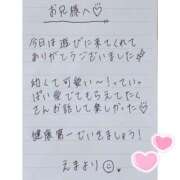 お兄様へ♡
今日は遊びに来てくれて
ありがとうございました
幼くて可愛い〜！ってい〜
ぱい愛でてもらえてたく
さんお話して楽しかった♡
健康第一でいきましょう！
えまより☺